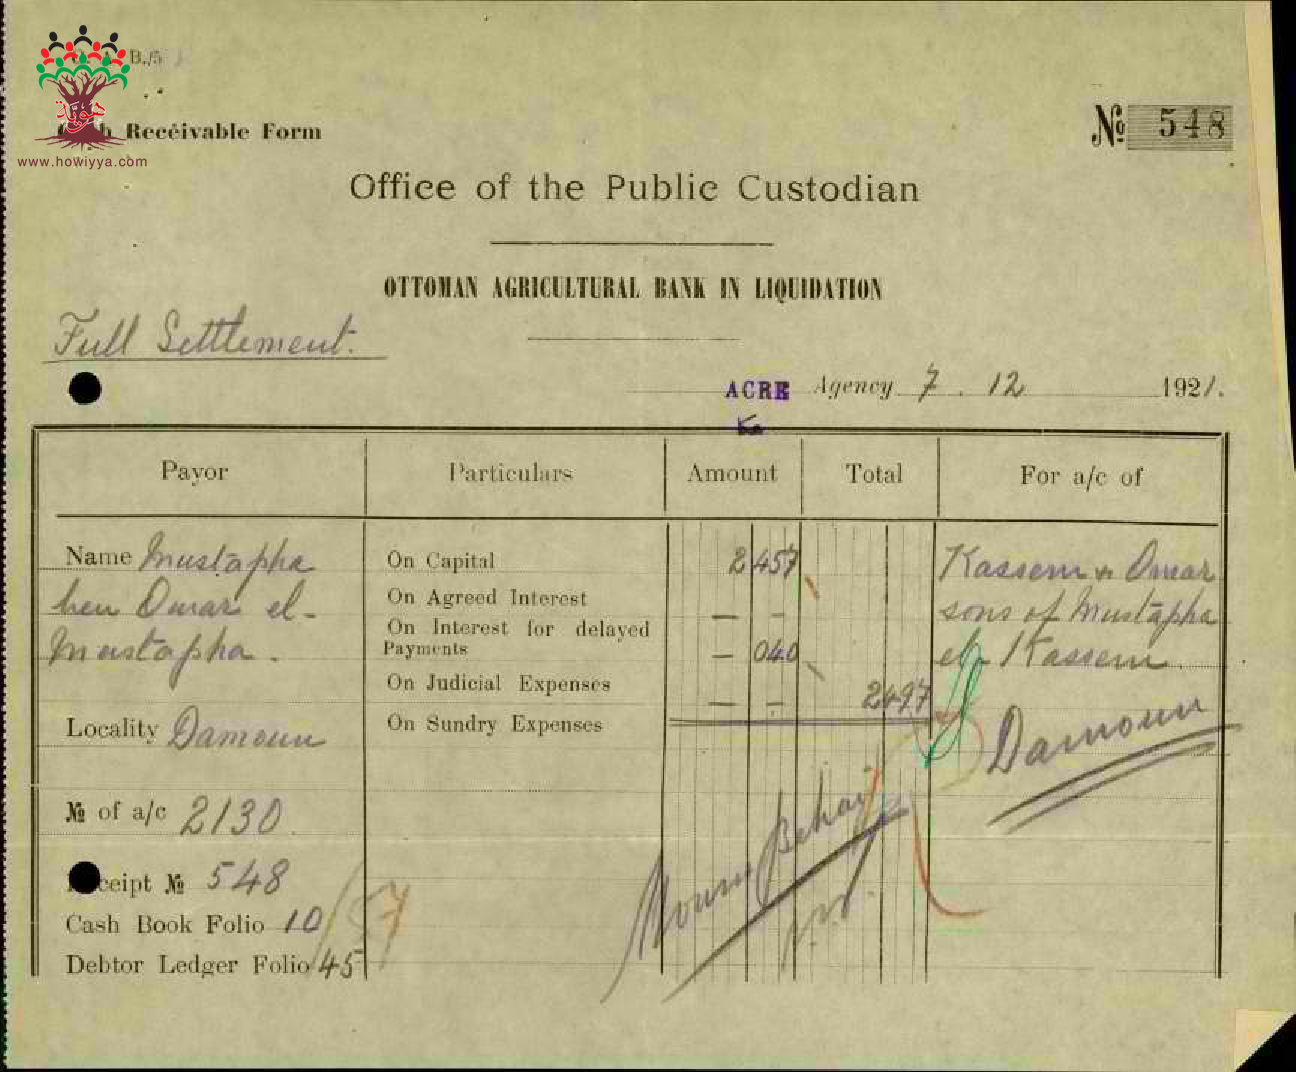 B./5
هوية
www.howiyya.com
Receivable Form
№ 548
Office of the Public Custodian
OTTOMAN AGRICULTURAL BANK IN LIQUIDATION
Full Settlement.
ACRE Agency 7 . 12 1921.
Payor Particulars Amount Total For a/c of
Name Mustapha
ben Omar el-
Mustapha.
Locality Damoun
№ of a/c 2130
Receipt № 548
Cash Book Folio 10
Debtor Ledger Folio 45
On Capital 2 457
On Agreed Interest — -
On Interest for delayed
Payments — 040
On Judicial Expenses — -
On Sundry Expenses
2497
Kassem & Omar
sons of Mustapha
el- Kassem.
Damoun
7